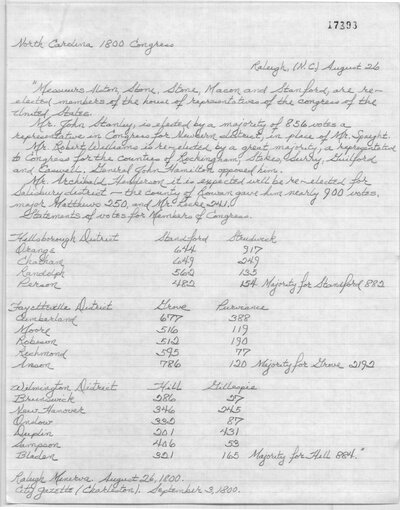 17393
North Carolina 1800 Congress
Raleigh, (N.C.) August 26
"Messieurs Alston, Stone, Stone, Macon and Stanford, are re-
elected members of the house of representatives of the congress of the
United States.
Mr. John Stanley, is elected by a majority of 856 votes a
representative in Congress for Newbern district, in place of Mr. Spaight.
Mr. Robert Williams is re-elected by a great majority, a representative
to Congress for the counties of Rockingham, Stokes, Surry, Guilford
and Caswell. General John Hamilton opposed him.
Mr. Archibald Henderson it is expected will be re-elected for
Salisbury district - the county of Rowan gave him nearly 900 votes,
major Matthews 250, and Mr. Locke 241.
Statements of votes for Members of Congress.
Hillsborough District Standford Strudwick
Orange 644 917
Chatham 649 249
Randolph 562 135
Person 482 154 Majority for Standford 882
Fayetteville District Grove Purviance
Cumberland 677 388
Moore 516 119
Robeson 512 190
Richmond 595 77
Anson 786 120 Majority for Grove 2192
Wilmington District Hill Gillespie
Brunswick 286 27
New Hanover 346 245
Onslow 332 87
Duplin 201 431
Sampson 406 53
Bladen 321 165 Majority for Hill 884."
Raleigh Minerva. August 26, 1800.
City Gazette (Charleston). September 3, 1800.